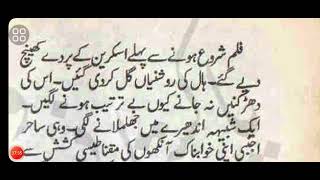 فلم شروع ہونے سے پہلے اسکرین کے پردے کھینچ
دیے گئے۔ ہال کی روشنیاں گل کردی گئیں۔ اس کی
دھڑکنیں نہ جانے کیوں بے ترتیب ہونے لگیں۔
ایک شبیہہ اندھیرے میں جھلملانے لگی۔ وہی ساحر
اجنبی اپنی خوابناک آنکھوں کی مقناطیسی کشش سے